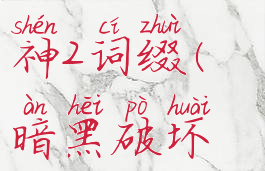 shén cí zhuì
神2词缀(
àn hēi pò huài
暗黑破坏